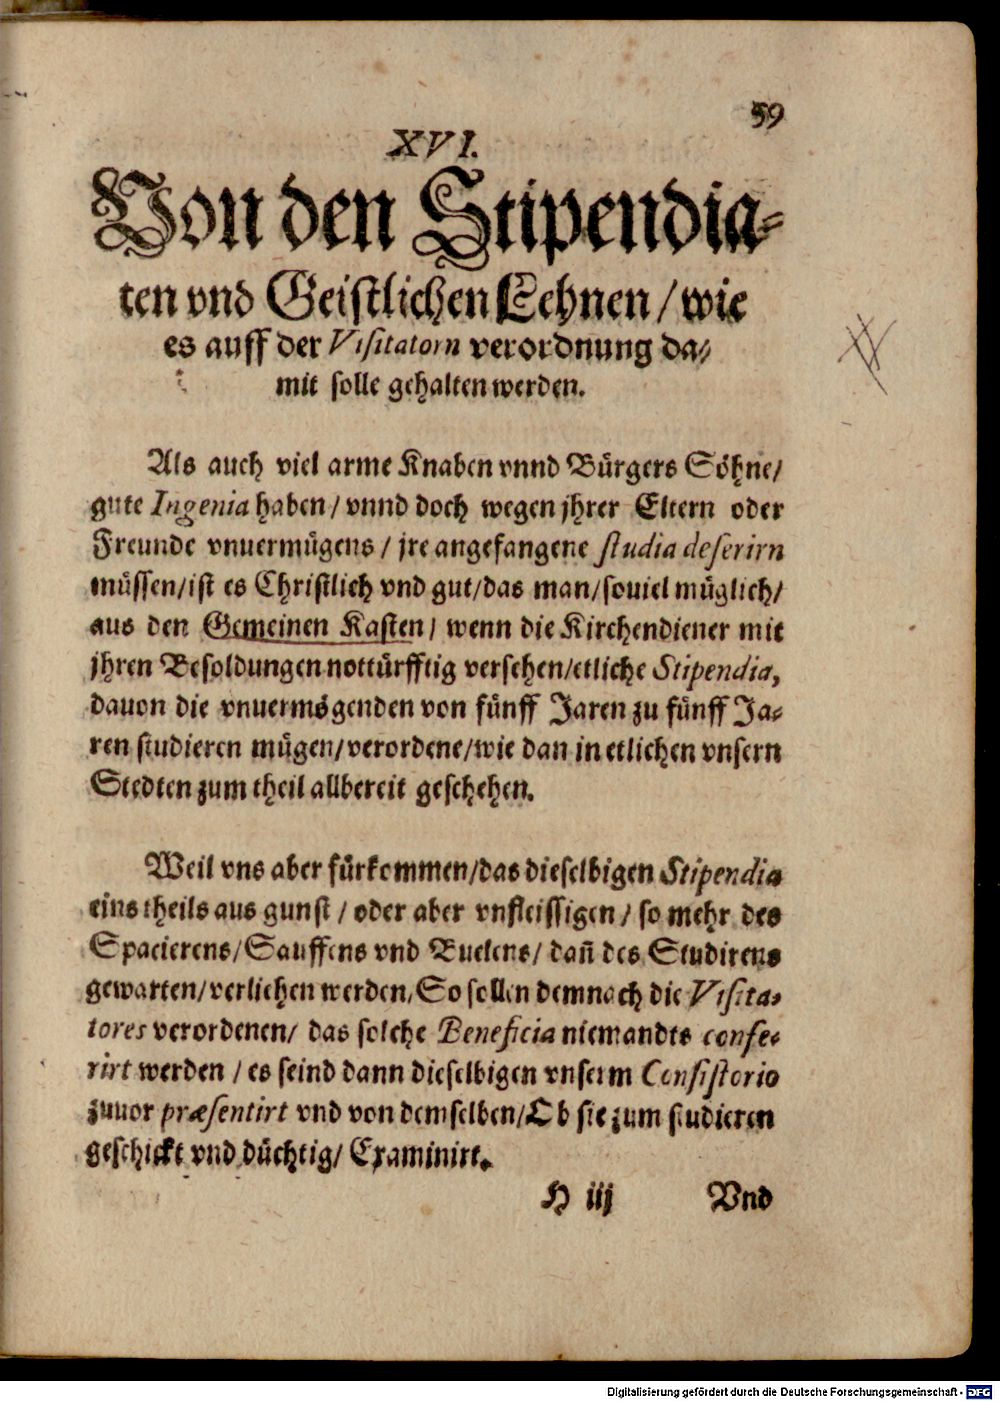 59
XVI.
Von den Stipendia-
ten vnd Geistlichen Lehnen / wie
es auff der Visitatorn verordnung da-
mit solle gehalten werden.
Als auch viel arme Knaben vnnd Bürgers Söhne/
gute Ingenia haben / vnnd doch wegen jhrer Eltern oder
Freunde vnuermügens / jre angefangene studia deserirn
müssen/ist es Christlich vnd gut/das man/souiel müglich/
aus den Gemeinen Kasten/ wenn die Kirchendiener mit
jhren Besoldungen nottürfftig versehen/etliche Stipendia,
dauon die vnuermögenden von fünff Jaren zu fünff Ja-
ren studieren mügen/verordene/wie dan in etlichen vnsern
Stedten zum theil allbereit geschehen.
Weil vns aber fürkommen/das dieselbigen Stipendia
eins theils aus gunst / oder aber vnfleissigen / so mehr des
Spacierens/Sauffens vnd Buelens/ dañ des Studirens
gewarten/verliehen werden/So sollen demnach die Visita-
tores verordenen/ das solche Beneficia niemandts confe-
rirt werden / es seind dann dieselbigen vnserm Consistorio
zuuor præsentirt vnd von demselben/Ob sie zum studieren
geschickt vnd düchtig/ Examinirt.
H iij Vnd
Digitalisierung gefördert durch die Deutsche Forschungsgemeinschaft - DFG